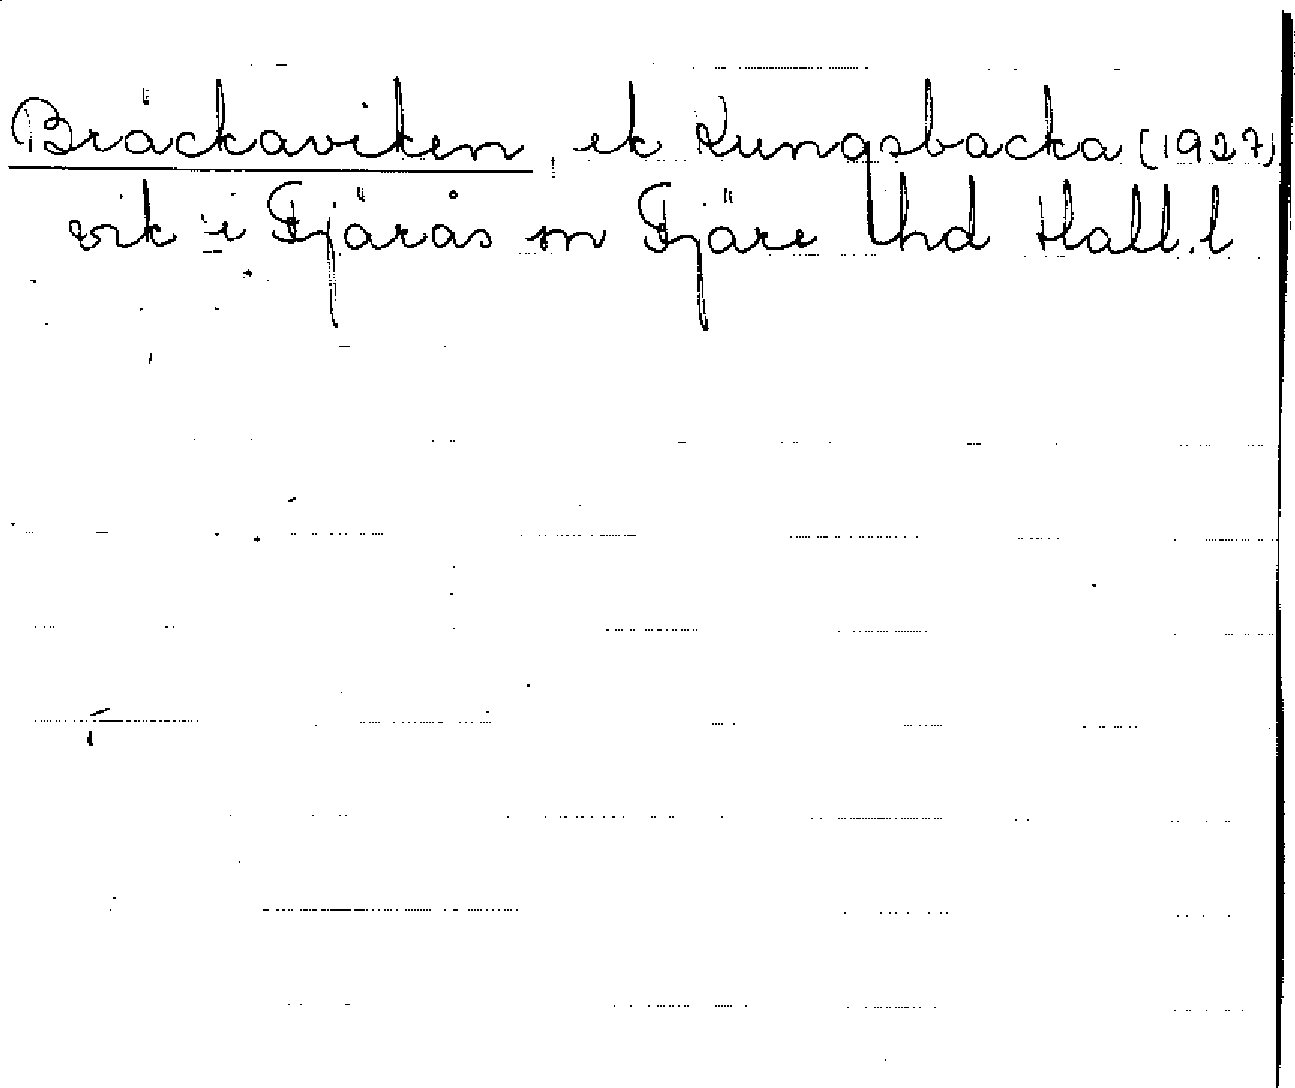 Bräckaviken, ek Kungsbacka (1927)
vik i Fjärås sn Fjäre hd Hall.l